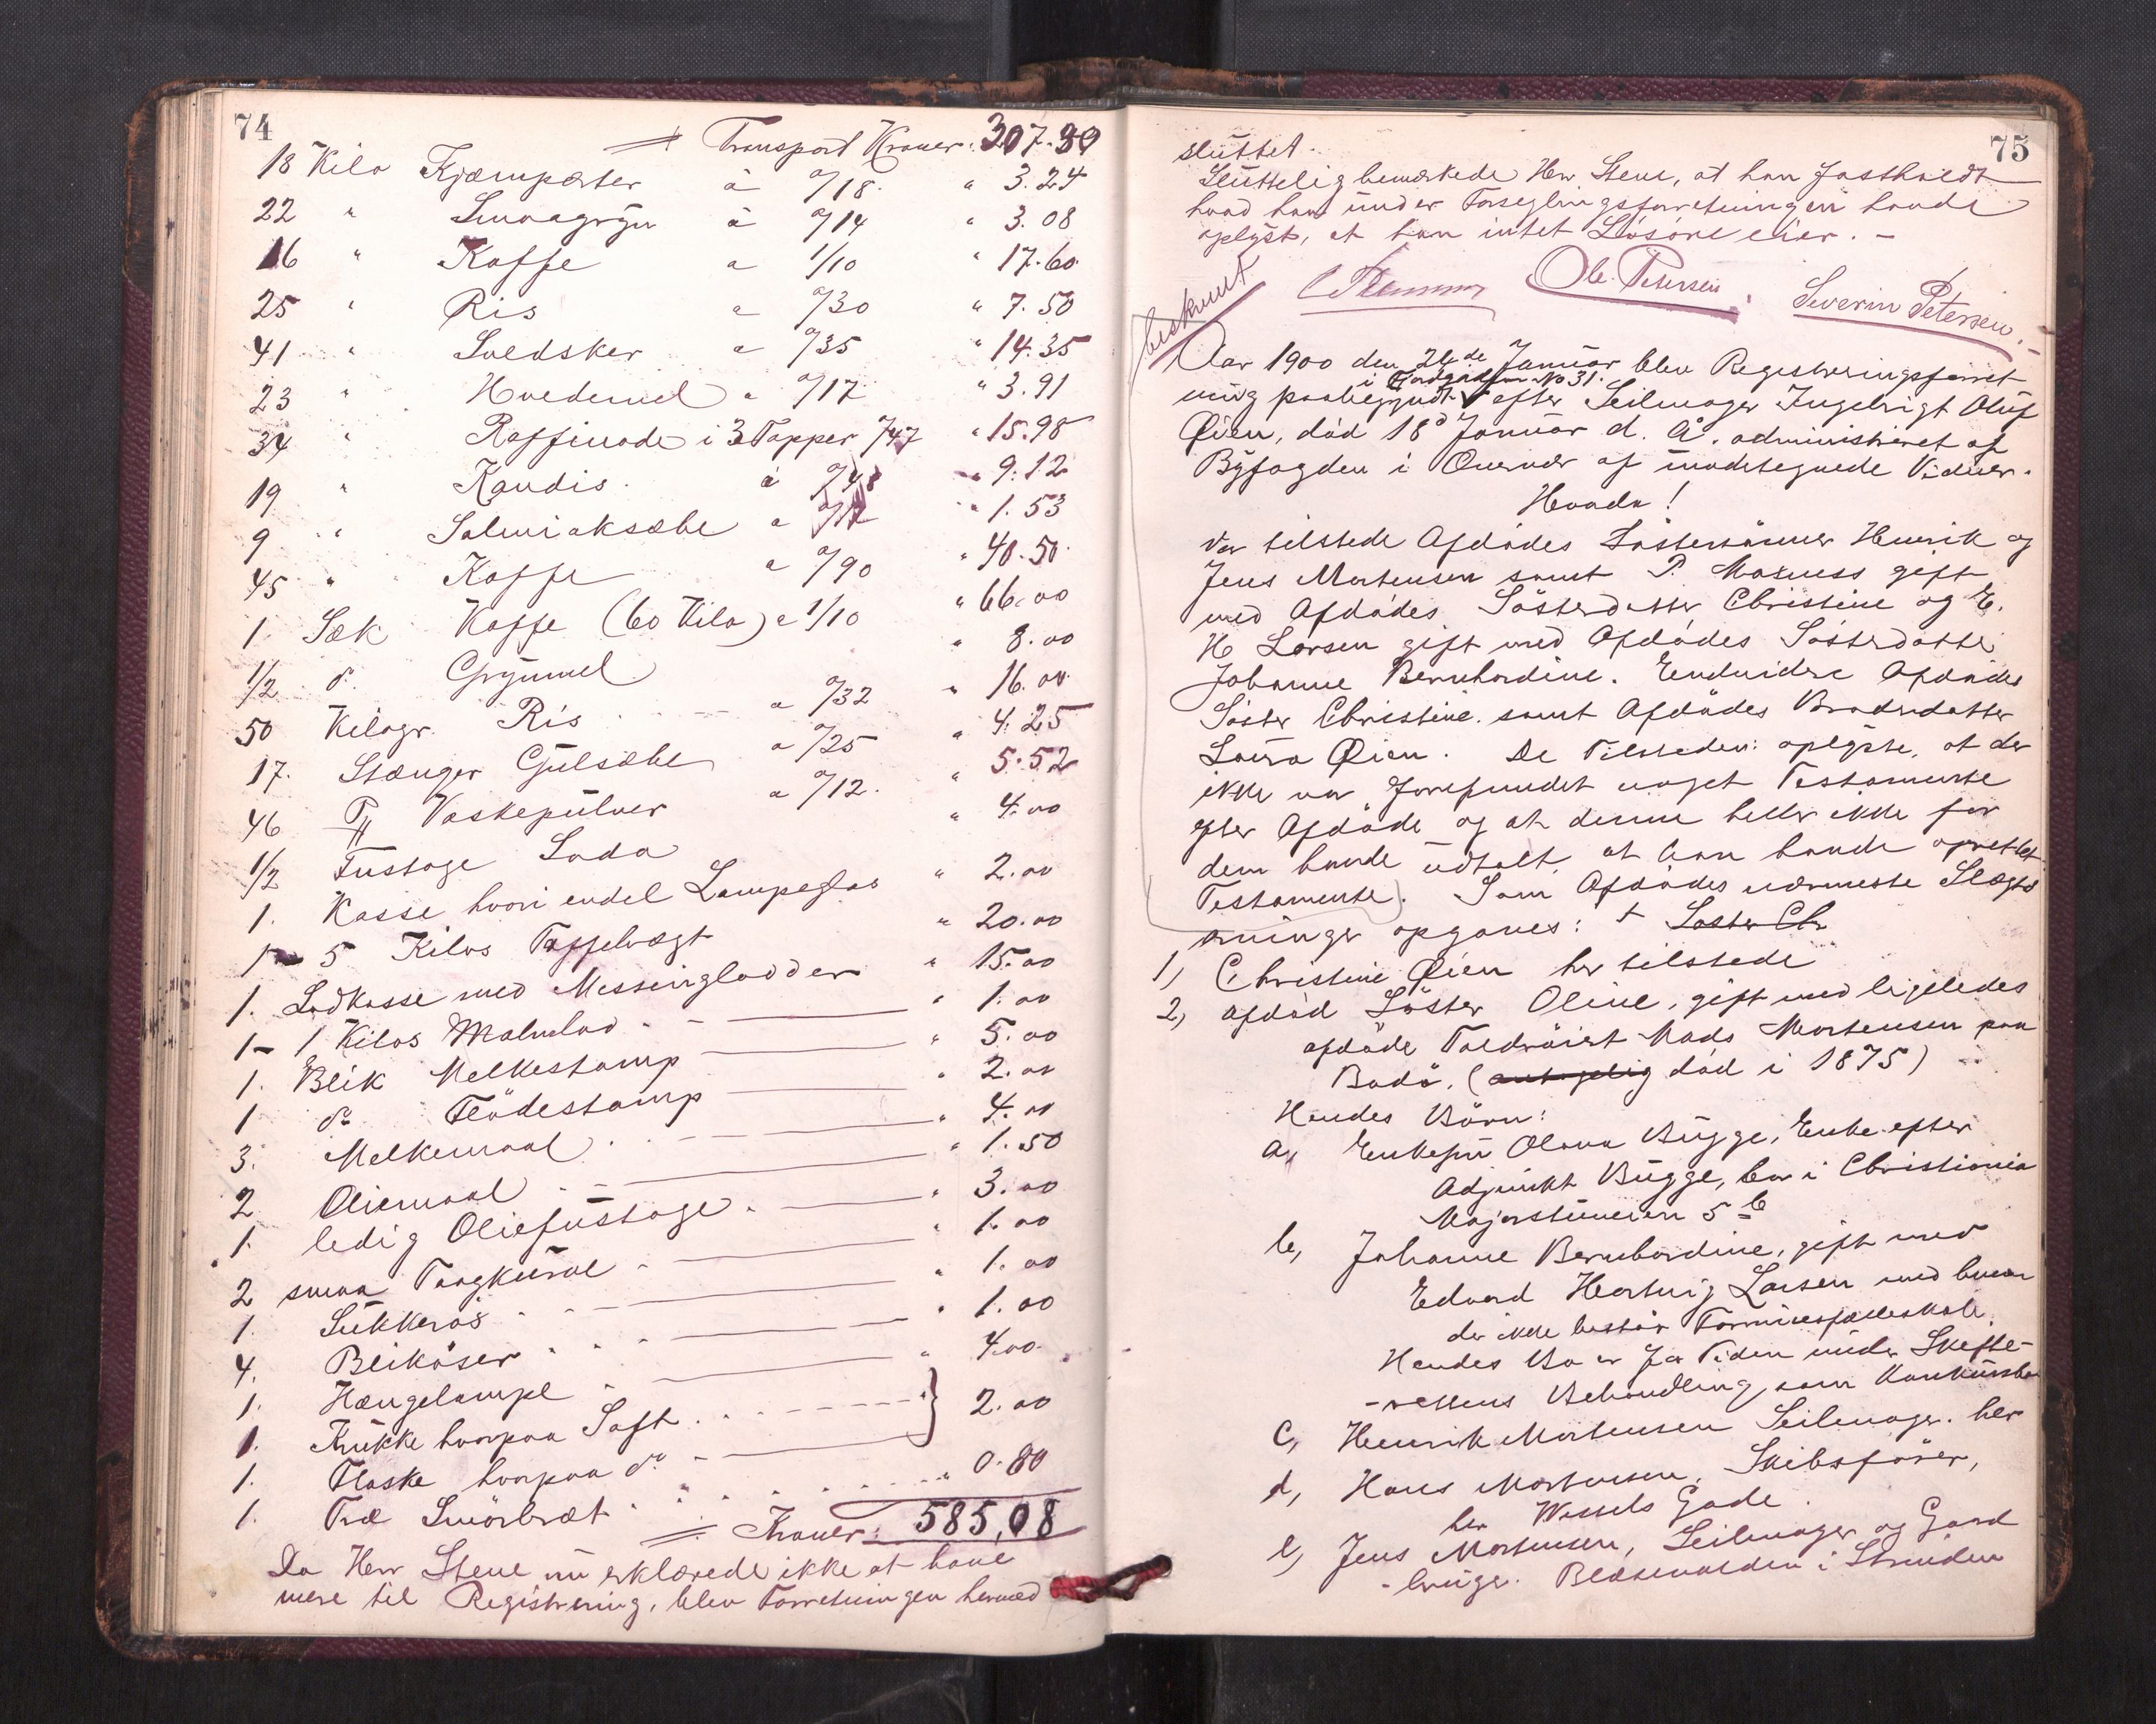 74
Transport Kroner: 307.89
18 Kilo Kjærnpærter à 0/18 " 3.24
22 " Smaagryn à 0/14 " 3.08
16 " Kaffe a 1/10 " 17.60
25 " Ris a 0/30 " 7.50
41 " Svedsker a 0/35 " 14.35
23 " Hvedemel a 0/17 " 3.91
34 " Raffinade i 3 Tapper /47 " 15.98
19 " Kandis à 0/48 " 9.12
9 " Salmiaksæbe a 0/17 " 1.53
45 " Kaffe a 0/90 " 40.50
1 Sæk Kaffe (60 Kilo) a 1/10 " 66.00
1/2 do Grynmel " 8.00
50 Kilogr. Ris a 0/32 " 16.00
17. Stænger Gulsæbe a 0/25 " 4.25
46 Vaskepulver a 0/12. " 5.52
1/2 Fustage Soda " 4.00
1. Kasse hvori endel Lampeglas " 2.00
1 5 Kilos Taffelvægt " 20.00
1. Lodkasse med Messinglodder " 15.00
1 1 Kilos Malmlod " 1.00
1. Blik Melkestamp " 5.00
1 do Flödestamp " 2.00
3. Melkemaal " 4.00
2 Oliemaal " 1.50
1. ledig Oliefustage " 3.00
2 smaa Taagkurve " 1.00
1. Sukkerös " 1.00
4. Bliköser " 1.00
1. Hængelampe " 4.00
1. Krukke hvorpaa Saft
1. Flaske hvorpaa do } 2.00
1. Træ Smörbræt " 0.80
Kroner: 585,08
Da Herr Stene nu erklærede ikke at have
mere til Registrering, blev Forretningen hermed
75
sluttet.
Sluttelig bemærkede Herr Stene, at han fastholdt
hvad han under Forseglingsforretningen havde
oplyst, at han intet Lösöre eier. –
Ole Petersen Severin Petersen
beskrevet
Aar 1900 den 26de Januar blev Registreringsforret
i Fjordgaden No 31.
ning paabegyndt efter Seilmager Ingebrigt Oluf
Øien, död 18de Januar d. Å. administreret af
Byfogden i Overvær af undertegnede Vidner.
Hvorda!
Var tilstede Afdödes Söstersönner Henrik og
Jens Mortensen samt P. Moxness gift
med Afdödes Sösterdatter Christine og E.
H Larsen gift med Afdödes Sösterdatter
Johanne Bernhardine. Endvidere Afdödes
Söster Christine samt Afdödes Broderdatter
Laura Øien. De Tilstedev: oplyste, at der
ikke var forefundet noget Testamente
efter Afdöde og at denne heller ikke for
dem havde udtalt, at han havde oprettet
Testamente. Som Afdödes nærmeste Slægt
ninger opgaves: Söster Ch
1) Christine Øien her tilstede
2) afdöd Söster Oline, gift med ligeledes
afdöde Toldröiert Mads Mortensen paa
Bodö. (antagelig död i 1875)
Hendes Börn:
a, Enkefru Olava Bugge, Enke efter
Adjunkt Bugge, bor i Christiania
Majorstuveien 5 b
b, Johanne Bernhardine, gift med
Edvard Hartvig Larsen med hvem
der ikke bestaar Formuesfælleskab.
Hendes Bo er for Tiden under Skifte-
-rettens Behandling som Konkursbo
c, Henrik Mortensen Seilmager. her
d, Hans Mortensen, Skibsförer,
her Wessels Gade.
e, Jens Mortensen, Seilmager og Gaard
-bruger. Blæsevolden i Strinden